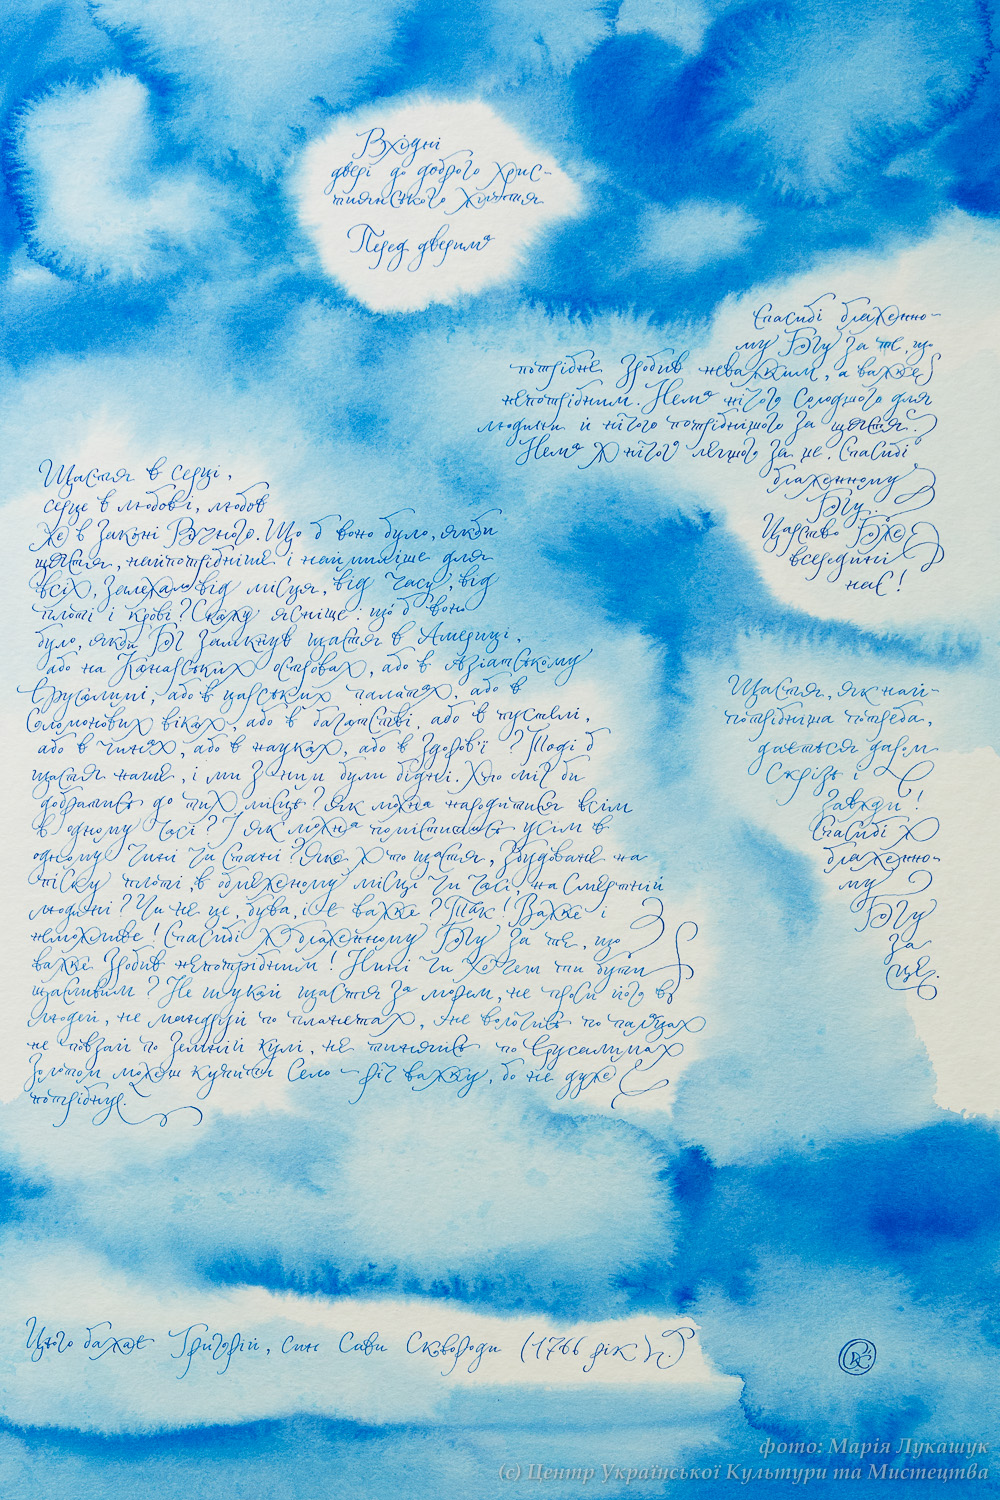 Вхідні
двері до доброго хрис-
тиянського життя
Перед дверима
Спасибі блаженно-
му Богу за те, що
потрібне зробив неважким, а важке
непотрібним. Нема нічого солодшого для
людини й нічого потрібнішого за щастя.
Нема ж нічого легшого за це. Спасибі
блаженному
Богу.
Царство Боже
всередині
нас!
Щастя в серці,
серце в любові, любов
же в законі Вічного. Що б воно було, якби
щастя, найпотрібніше і наймиліше для
всіх, залежало від місця, від часу, від
плоті і крові? Скажу ясніше: що б воно
було, якби Бог замкнув щастя в Америці,
або на Канарських островах, або в Азіатському
Єрусалимі, або в царських палатах, або в
Соломонових віках, або в багатстві, або в пустелі,
або в чинах, або в науках, або в здоров'ї? Тоді б
щастя наше, і ми з ним були бідні. Хто міг би
добратись до тих місць? Як можна народитися всім
в одному часі? І як можна поміститись усім в
одному чині чи стані? Яке ж то щастя, збудоване на
піску плоті, в обмеженому місці чи часі, на смертній
людині? Чи не це, бува, і є важке? Так! Важке і
неможливе! Спасибі ж блаженному Богу за те, що
важке зробив непотрібним! Нині чи хочеш ти бути
щасливим? Не шукай щастя за морем, не проси його в
людей, не мандруй по планетах, не волочись по палацах
не повзай по земній кулі, не тиняйсь по Єрусалимах
Золотом можеш купити село – річ важку, бо не дуже
потрібну.
Щастя, як най-
потрібніша потреба,
дається даром
скрізь і
завжди!
Спасибі ж
блаженно-
му
Богу
за
це.
Цього бажає Григорій, син Сави Сковороди (1766 рік).
фото: Марія Лукашук
(c) Центр Української Культури та Мистецтва